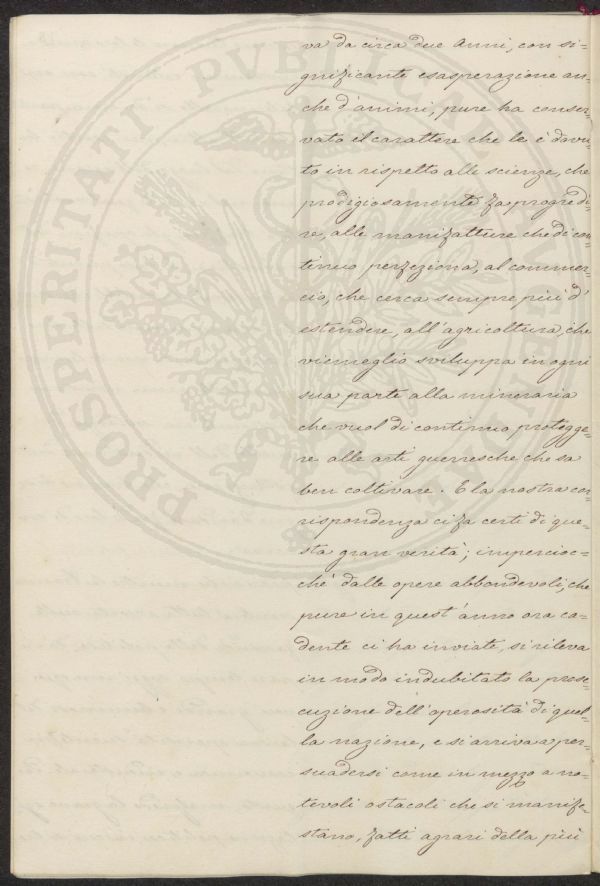 va da circa due Anni, con si=
gnificante esasperazione an=
che d'animi, pure ha conser=
vato il carattere che le è dovu=
to in rispetto alle scienze, che
prodigiosamente fa progredi=
re, alle manifatture che di con=
tinuo perfeziona, al commer=
cio, che cerca sempre più d'
estendere, all'agricoltura, che
viemeglio sviluppa in ogni
sua parte alla mineraria
che vuol di continuo protegge=
re alle arti guerresche che sa
ben coltivare. E la nostra cor=
rispondenza ci fa certi di que=
sta gran verità; impercioc=
chè dalle opere abbondevoli, che
pure in quest'anno ora ca=
dente ci ha inviate, si rileva
in modo indubitato la prose=
cuzione dell'operosità di quel=
la nazione, e si arriva a per=
suadersi come in mezzo a no=
tevoli ostacoli che si manife=
stano, fatti agrari della più
PROSPERITATI PUBLICAE